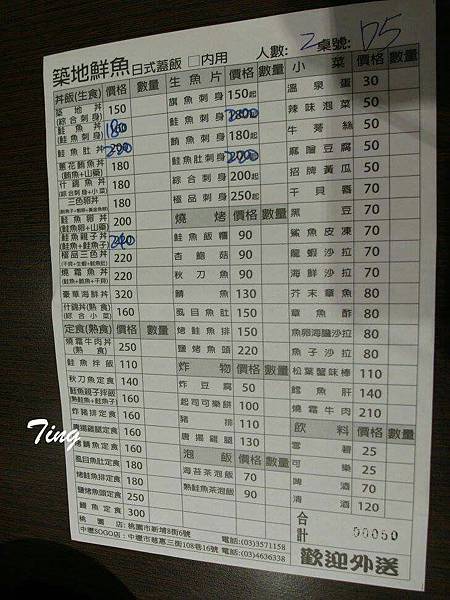 築地鮮魚 日式蓋飯 □內用 人數: 2 桌號: D5
丼飯(生食) 價格 數量
築地丼 (綜合刺身) 150
鮭魚丼 (鮭魚刺身) 180
鮭魚肚丼 200
蔥花鮪魚丼 (鮪魚+山藥) 180
什錦魚丼 (綜合刺身+小菜) 180
三色卵丼 180
鮭魚卵丼 (鮭魚卵+山藥) 200
鮭魚親子丼 (鮭魚+鮭魚子) 240
極品三色丼 220
燒霜魚丼 220
豪華海鮮丼 320
什錦丼(熟) (綜合小菜) 160
定食(熟食) 價格 數量
燒霜牛肉丼 (熟食) 250
鮭魚拌飯 110
秋刀魚定食 140
鮭魚親子拌飯 (熟鮭魚+鮭魚子) 160
炸豬排定食 160
唐揚雞腿定食 180
烤鯖魚定食 180
風目魚肚定食 200
烤鮭魚排定食 180
鹽烤魚頭定食 250
鰻魚定食 300
生魚片 價格 數量
旗魚刺身 150起
鮭魚刺身 200
鮪魚刺身 180起
鮭魚肚刺身
綜合刺身 200起
極品刺身 250起
燒烤 價格 數量
鮭魚飯糰 90
杏鮑菇 90
秋刀魚 90
鯖魚 130
風目魚肚 150
烤鮭魚排 150
鹽烤魚頭 220
炸物 價格 數量
炸豆腐 50
起司可樂餅 100
豬排 110
唐揚雞腿 130
泡飯 價格 數量
海苔茶泡飯 70
熟鮭魚茶泡飯 90
小菜 價格 數量
溫泉蛋 30
辣味泡菜 50
牛蒡絲 50
麻醬豆腐 50
招牌黃瓜 50
干貝唇 70
黑豆 70
鯊魚皮凍 70
龍蝦沙拉 70
海鮮沙拉 70
芥末章魚 80
章魚酢 80
魚卵海膽沙拉 80
魚子沙拉 80
松葉蟹味棒 110
鱈魚肝 140
燒霜牛肉 210
飲料 價格 數量
雪碧 25
可樂 25
啤酒 70
清酒 120
合計 00050
桃園店:桃園市新埔8街6號 電話:(03)3571158
中壢SOGO店:中壢市慈惠三街108巷16號 電話:(03)4636338
歡迎外送
Ting